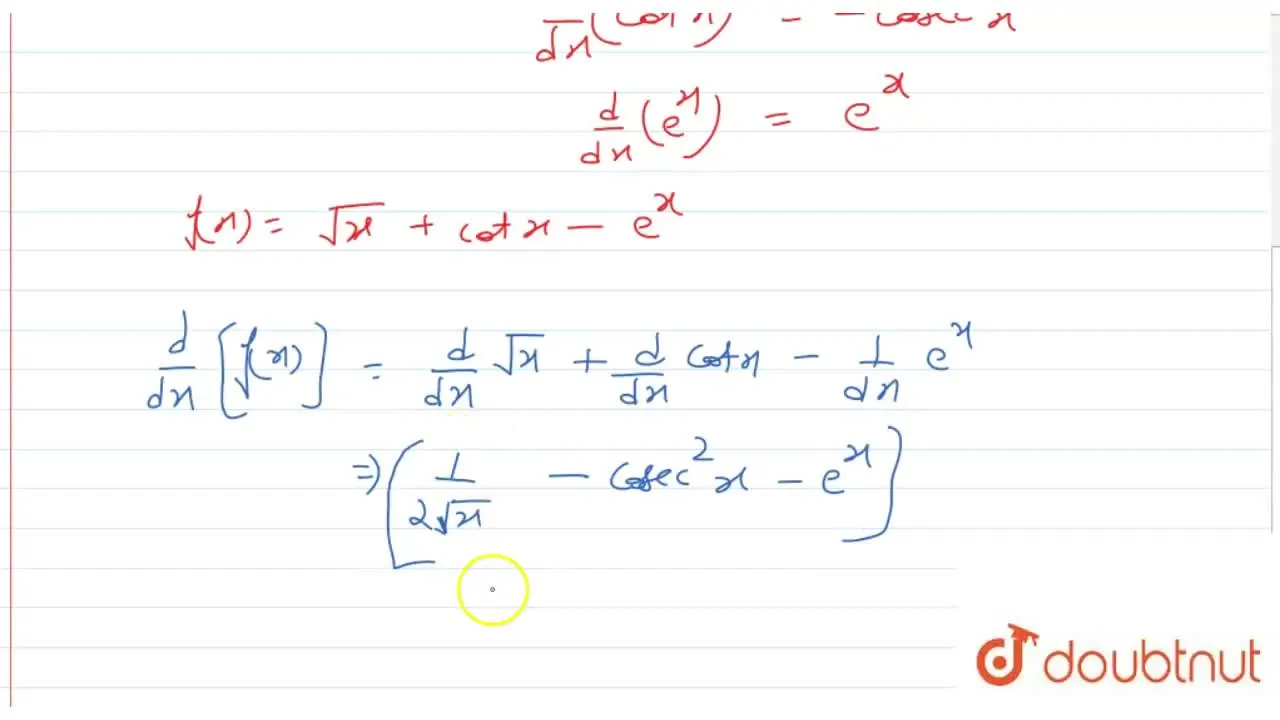 d/dx (cot x) = - cosec x
d/dx (e^x) = e^x
f(x) = √x + cot x - e^x
d/dx [f(x)] = d/dx √x + d/dx cot x - 1/dx e^x
=> [1/2√x - cosec²x - e^x]
doubtnut